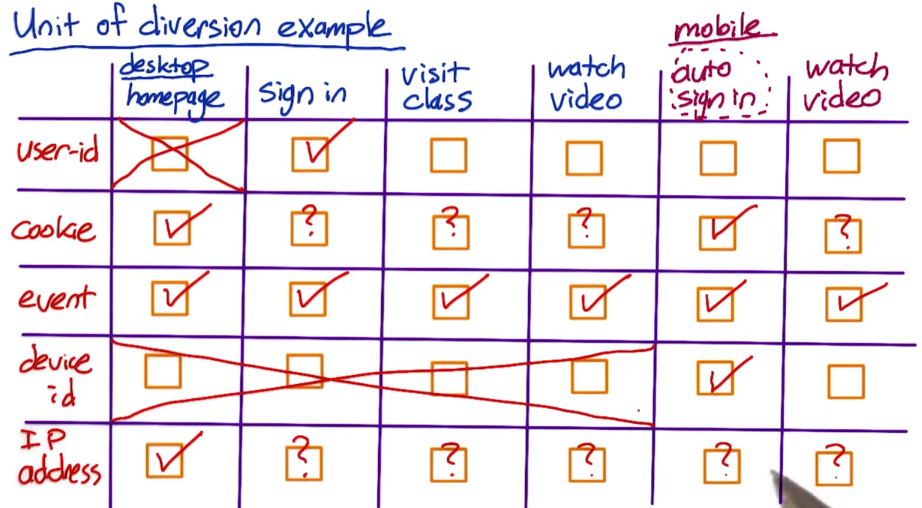 Unit of diversion example
mobile
desktop
homepage
sign in
visit
class
watch
video
auto
sign in
watch
video
user-id
cookie
? ? ? ?
event
device
id
IP
address
? ? ? ? ?